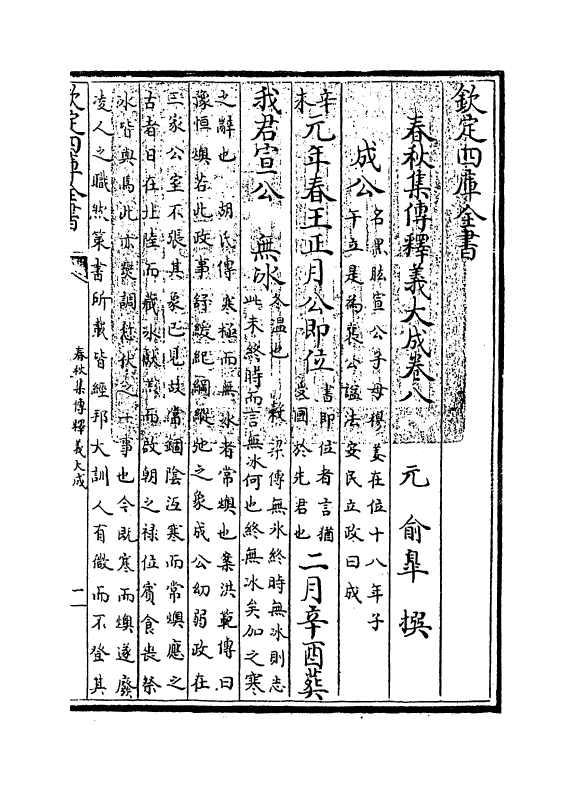 欽定四庫全書
春秋集傳釋義大成卷八
元 俞臯 撰
成公名黑肱宣公子母穆姜在位十八年子
午立是為襄公諡法安民立政曰成
辛未元年春王正月公即位書即位者言猶
受國於先君也二月辛酉葬
我君宣公 無冰冬温也 穀梁傳無冰終時無冰則志
此未終時而言無冰何也終無冰矣加之寒
之辭也 胡氏傳寒極而無冰者常燠也案洪範傳曰
豫恒燠若此政事舒緩紀綱縱弛之象成公幼弱政在
三家公室不張其象已見故當涸陰沍寒而常燠應之
古者日在北陸而藏冰獻羔而啟朝之禄位賓食喪祭
冰皆與焉此亦爕調愆伏之一事也今既寒而燠遂廢
凌人之職然策書所載皆經邦大訓人有微而不登其
欽定四庫全書
春秋集傳釋義大成